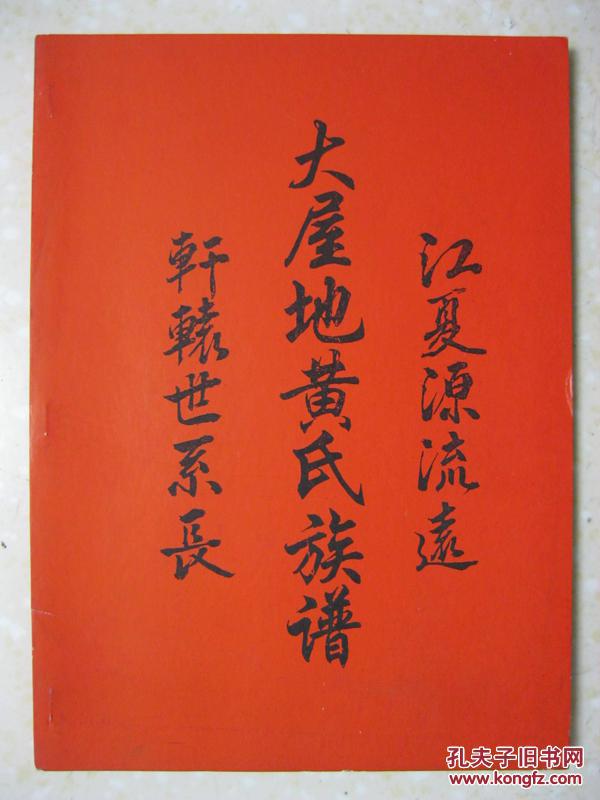 江夏源流遠
大屋地黄氏族谱
軒轅世系長
孔夫子旧书网
www.kongfz.com